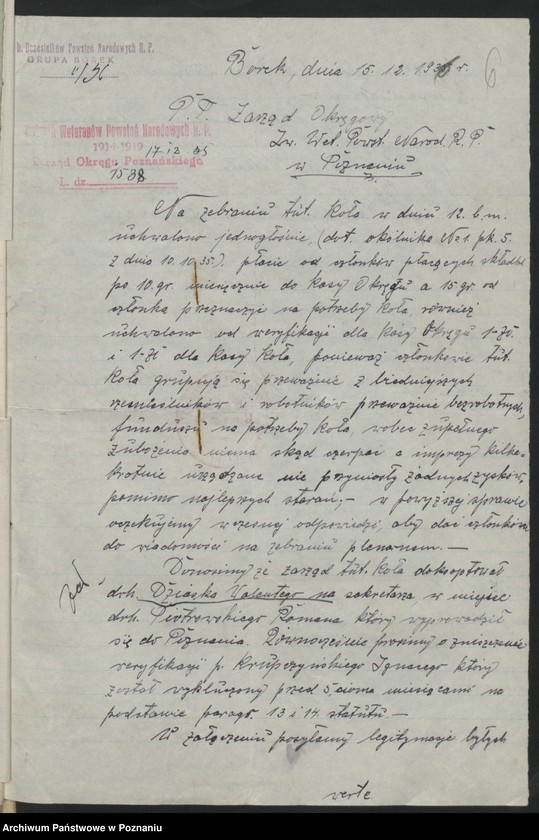 b. Uczestników Powstań Narodowych R. P.
GRUPA BOREK
Borek, dnia 15. 12. 1935 r.
6
P. T. Zarząd Okręgowy
Zw. Wet. Powst. Narod. R. P.
w Poznaniu
Weteranów Powstań Narodowych R. P.
1914-1919
17.12 35
Zarząd Okręgu Poznańskiego
L. dz. 1588
Na zebraniu tut. Koła w dniu 12. b. m.
uchwalono jednogłośnie, (dot. okólnika No 1. pk. 5.
z dnia 10. 10. 35.). płacić od członków płacących składki
po 10. gr. miesięcznie do kasy Okręgu a 15. gr. od
członka przeznaczyć na potrzeby Koła, również
uchwalono od weryfikacji dla Kasy Okręgu 1-zł.
i 1-zł dla Kasy Koła, ponieważ członkowie tut.
Koła grupują się przeważnie z biedniejszych
rzemieślników i robotników przeważnie bezrobotnych,
funduszu na potrzeby Koła, wobec zupełnego
zubożenia niema skąd czerpać a imprezy kilka-
krotnie urządzane nie przyniosły żadnych zysków,
pomimo najlepszych starań, - w powyższej sprawie
oczekujemy wczesnej odpowiedzi, aby dać członkom
do wiadomości na zebraniu plenarnem. -
Donosimy że zarząd tut. Koła dokooptował
drh. Dziaska Walentego na sekretarza w miejsce
drh. Piotrowskiego Romana który wyprowadził
się do Poznania. Równocześnie prosimy o zniszczenie
weryfikacji p. Krupczyńskiego Ignacego który
został wykluczony przed 5. cioma miesiącami na
podstawie paragr. 13 i 14 statutu -
W załączeniu posyłamy legitymacje byłych
verte
Archiwum Państwowe w Poznaniu